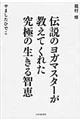 龍村修
伝説のヨガマスターが
教えてくれた
究極の生きる智恵
やましたひでこ